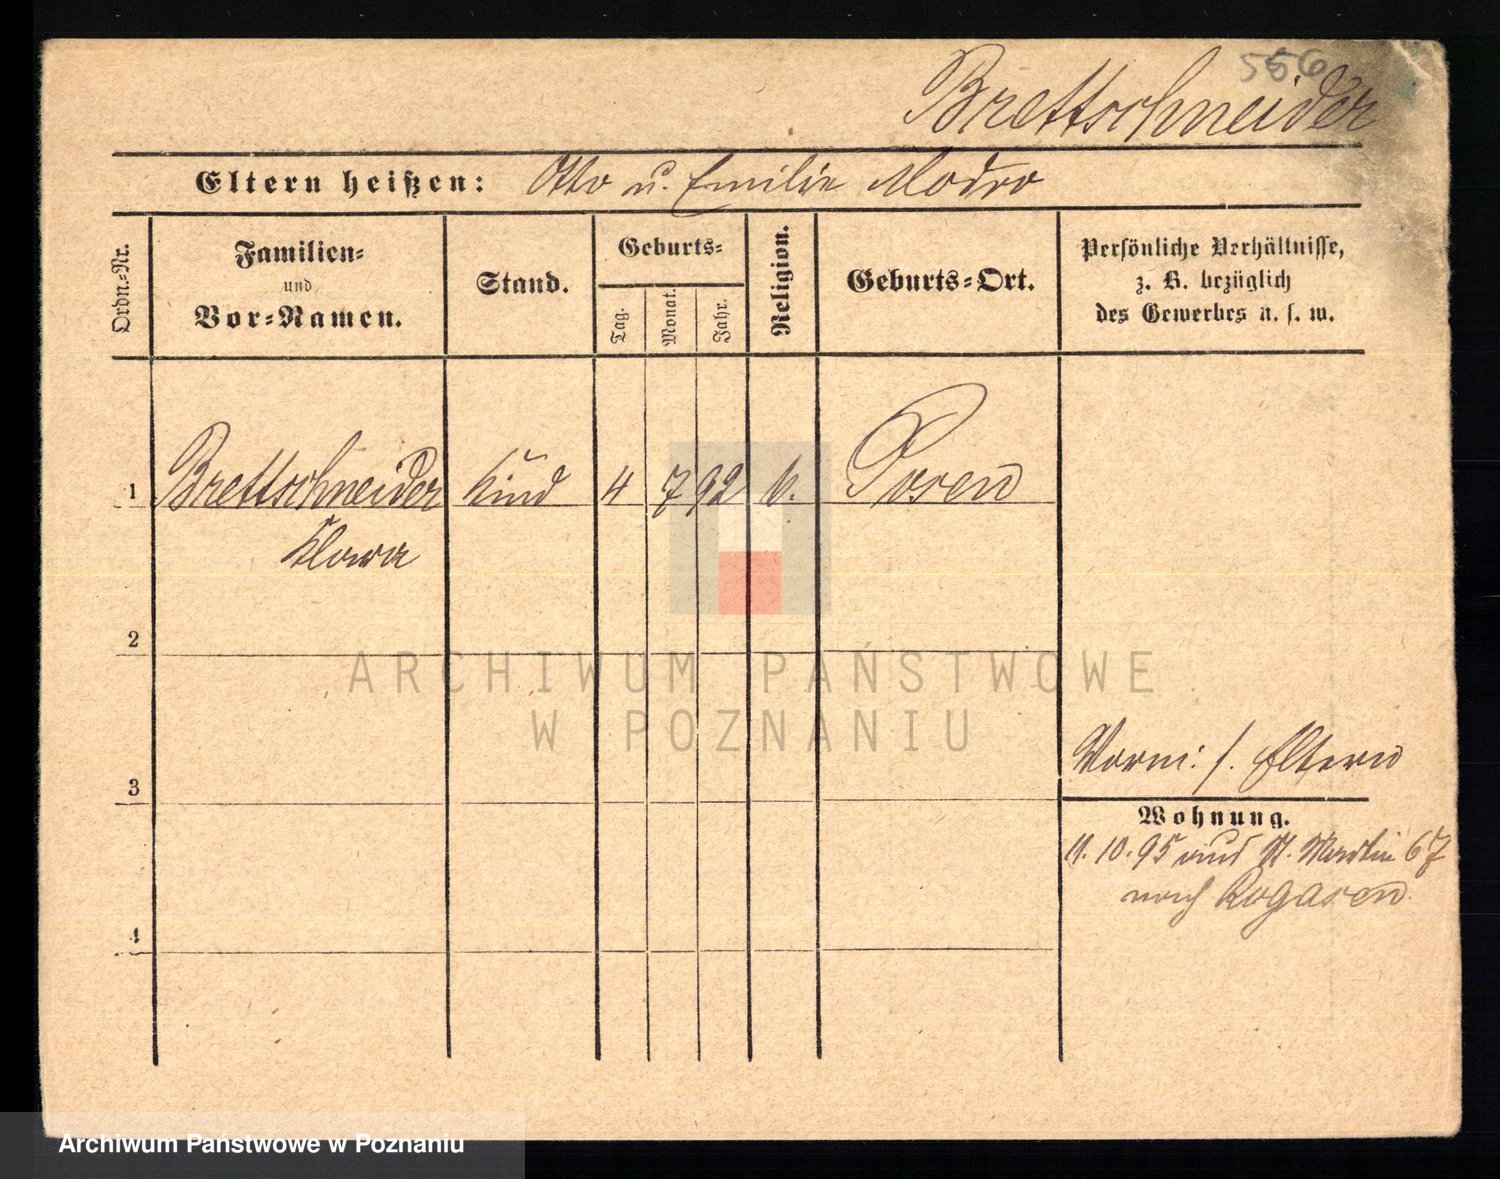 556
Brettschneider
Eltern heißen: Otto u. Emilie Modro
Ordn.-Nr.
Familien-
und
Vor-Namen.
Stand.
Geburts-
Tag.
Monat.
Jahr.
Religion.
Geburts-Ort.
Persönliche Verhältnisse,
z. B. bezüglich
des Gewerbes u. s. w.
1 Brettschneider Kind 4 7 92 Posen
Klara
2
3
4
Eltern
Wohnung.
11. 10. 95 St. Martin 67
nach Rogasen.
ARCHIWUM PAŃSTWOWE
W POZNANIU
Archiwum Państwowe w Poznaniu